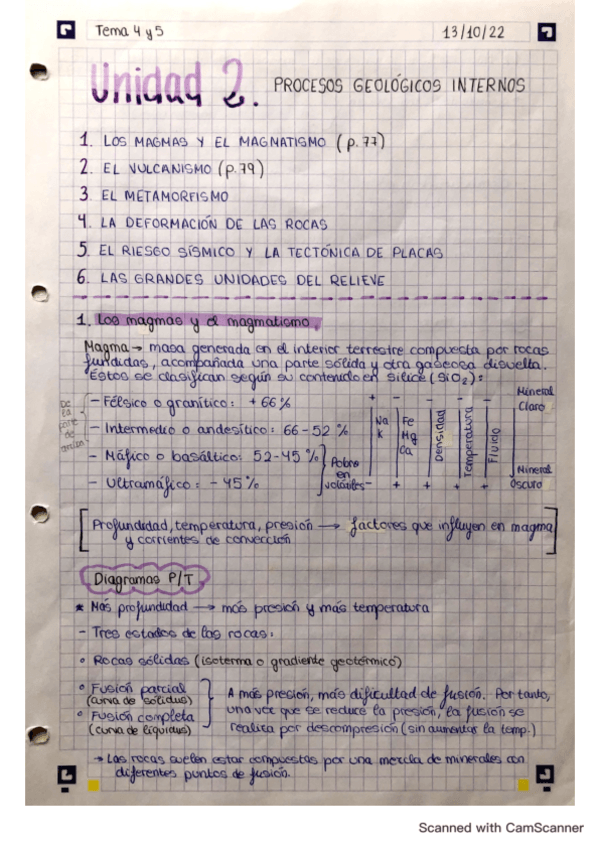 Tema 4 y 5
13/10/22
Unidad 2. PROCESOS GEOLÓGICOS INTERNOS
1. LOS MAGMAS Y EL MAGMATISMO (p.77)
2. EL VULCANISMO (p.79)
3. EL METAMORFISMO
4. LA DEFORMACIÓN DE LAS ROCAS
5. EL RIESGO SÍSMICO Y LA TECTÓNICA DE PLACAS
6. LAS GRANDES UNIDADES DEL RELIEVE
1. Los magmas y el magmatismo.
Magma → masa generada en el interior terrestre compuesta por rocas
fundidas, acompañada una parte sólida y otra gaseosa disuelta.
Estos se clasifican según su contenido en sílice (SiO2):
De la parte de
– Félsico o granítico: + 66%
– Intermedio o andesítico: 66-52 %
– Máfico o basáltico: 52-45 %
– Ultramáfico: - 45%
Pobre en volátiles
+ - - - -
Na K
Fe Mg Ca
Densidad
Temperatura
Fluido
- + + + +
Mineral Claro
Mineral Oscuro
[Profundidad, temperatura, presión → factores que influyen en magma
y corrientes de convección]
Diagramas P/T
* Más profundidad → más presión y más temperatura
– Tres estados de las rocas:
• Rocas sólidas (isoterma o gradiente geotérmico)
° Fusión parcial
(curva de sólidus)
° Fusión completa
(curva de líquidus)
A más presión, más dificultad de fusión. Por tanto,
una vez que se reduce la presión, la fusión se
realiza por descompresión (sin aumentar la temp.)
→ Las rocas suelen estar compuestas por una mezcla de minerales con
diferentes puntos de fusión.
Scanned with CamScanner